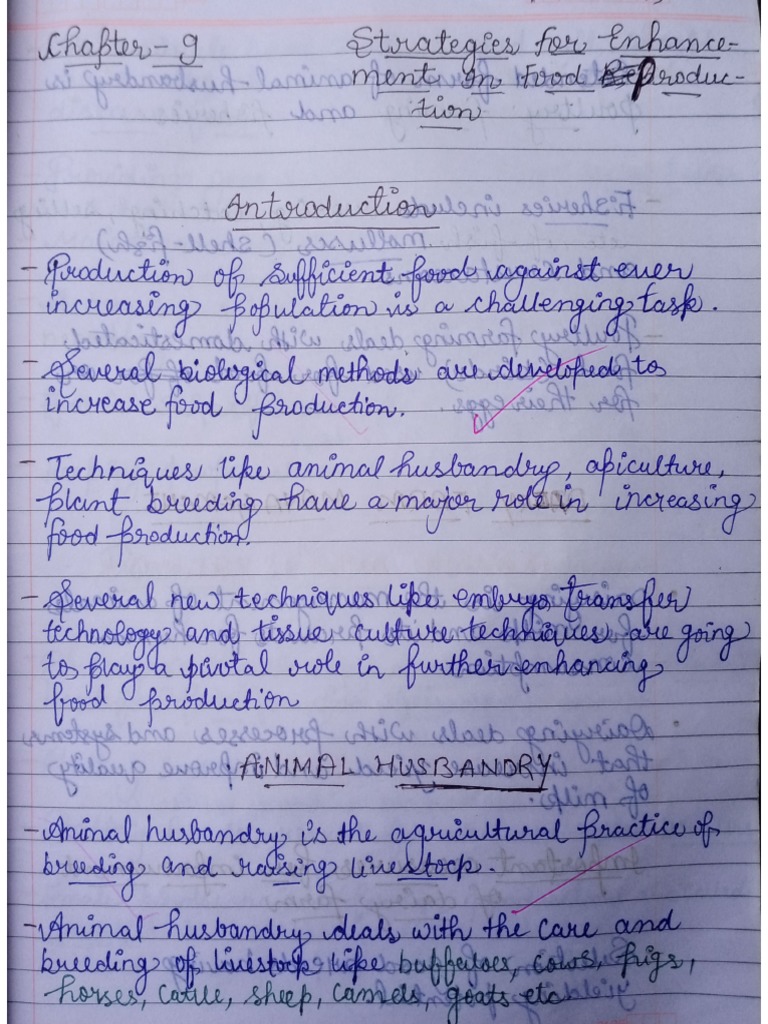 Chapter - 9
Strategies for Enhance-
ment in Food Produc-
tion
Introduction
- Production of sufficient food against ever
increasing population is a challenging task.
- Several biological methods are developed to
increase food production.
- Techniques like animal husbandry, apiculture,
plant breeding have a major role in increasing
food production.
- Several new techniques like embryo transfer
technology and tissue culture techniques are going
to play a pivotal role in further enhancing
food production
ANIMAL HUSBANDRY
- Animal husbandry is the agricultural practice of
breeding and raising livestock.
- Animal husbandry deals with the care and
breeding of livestock like buffaloes, cows, pigs,
horses, cattle, sheep, camels, goats etc